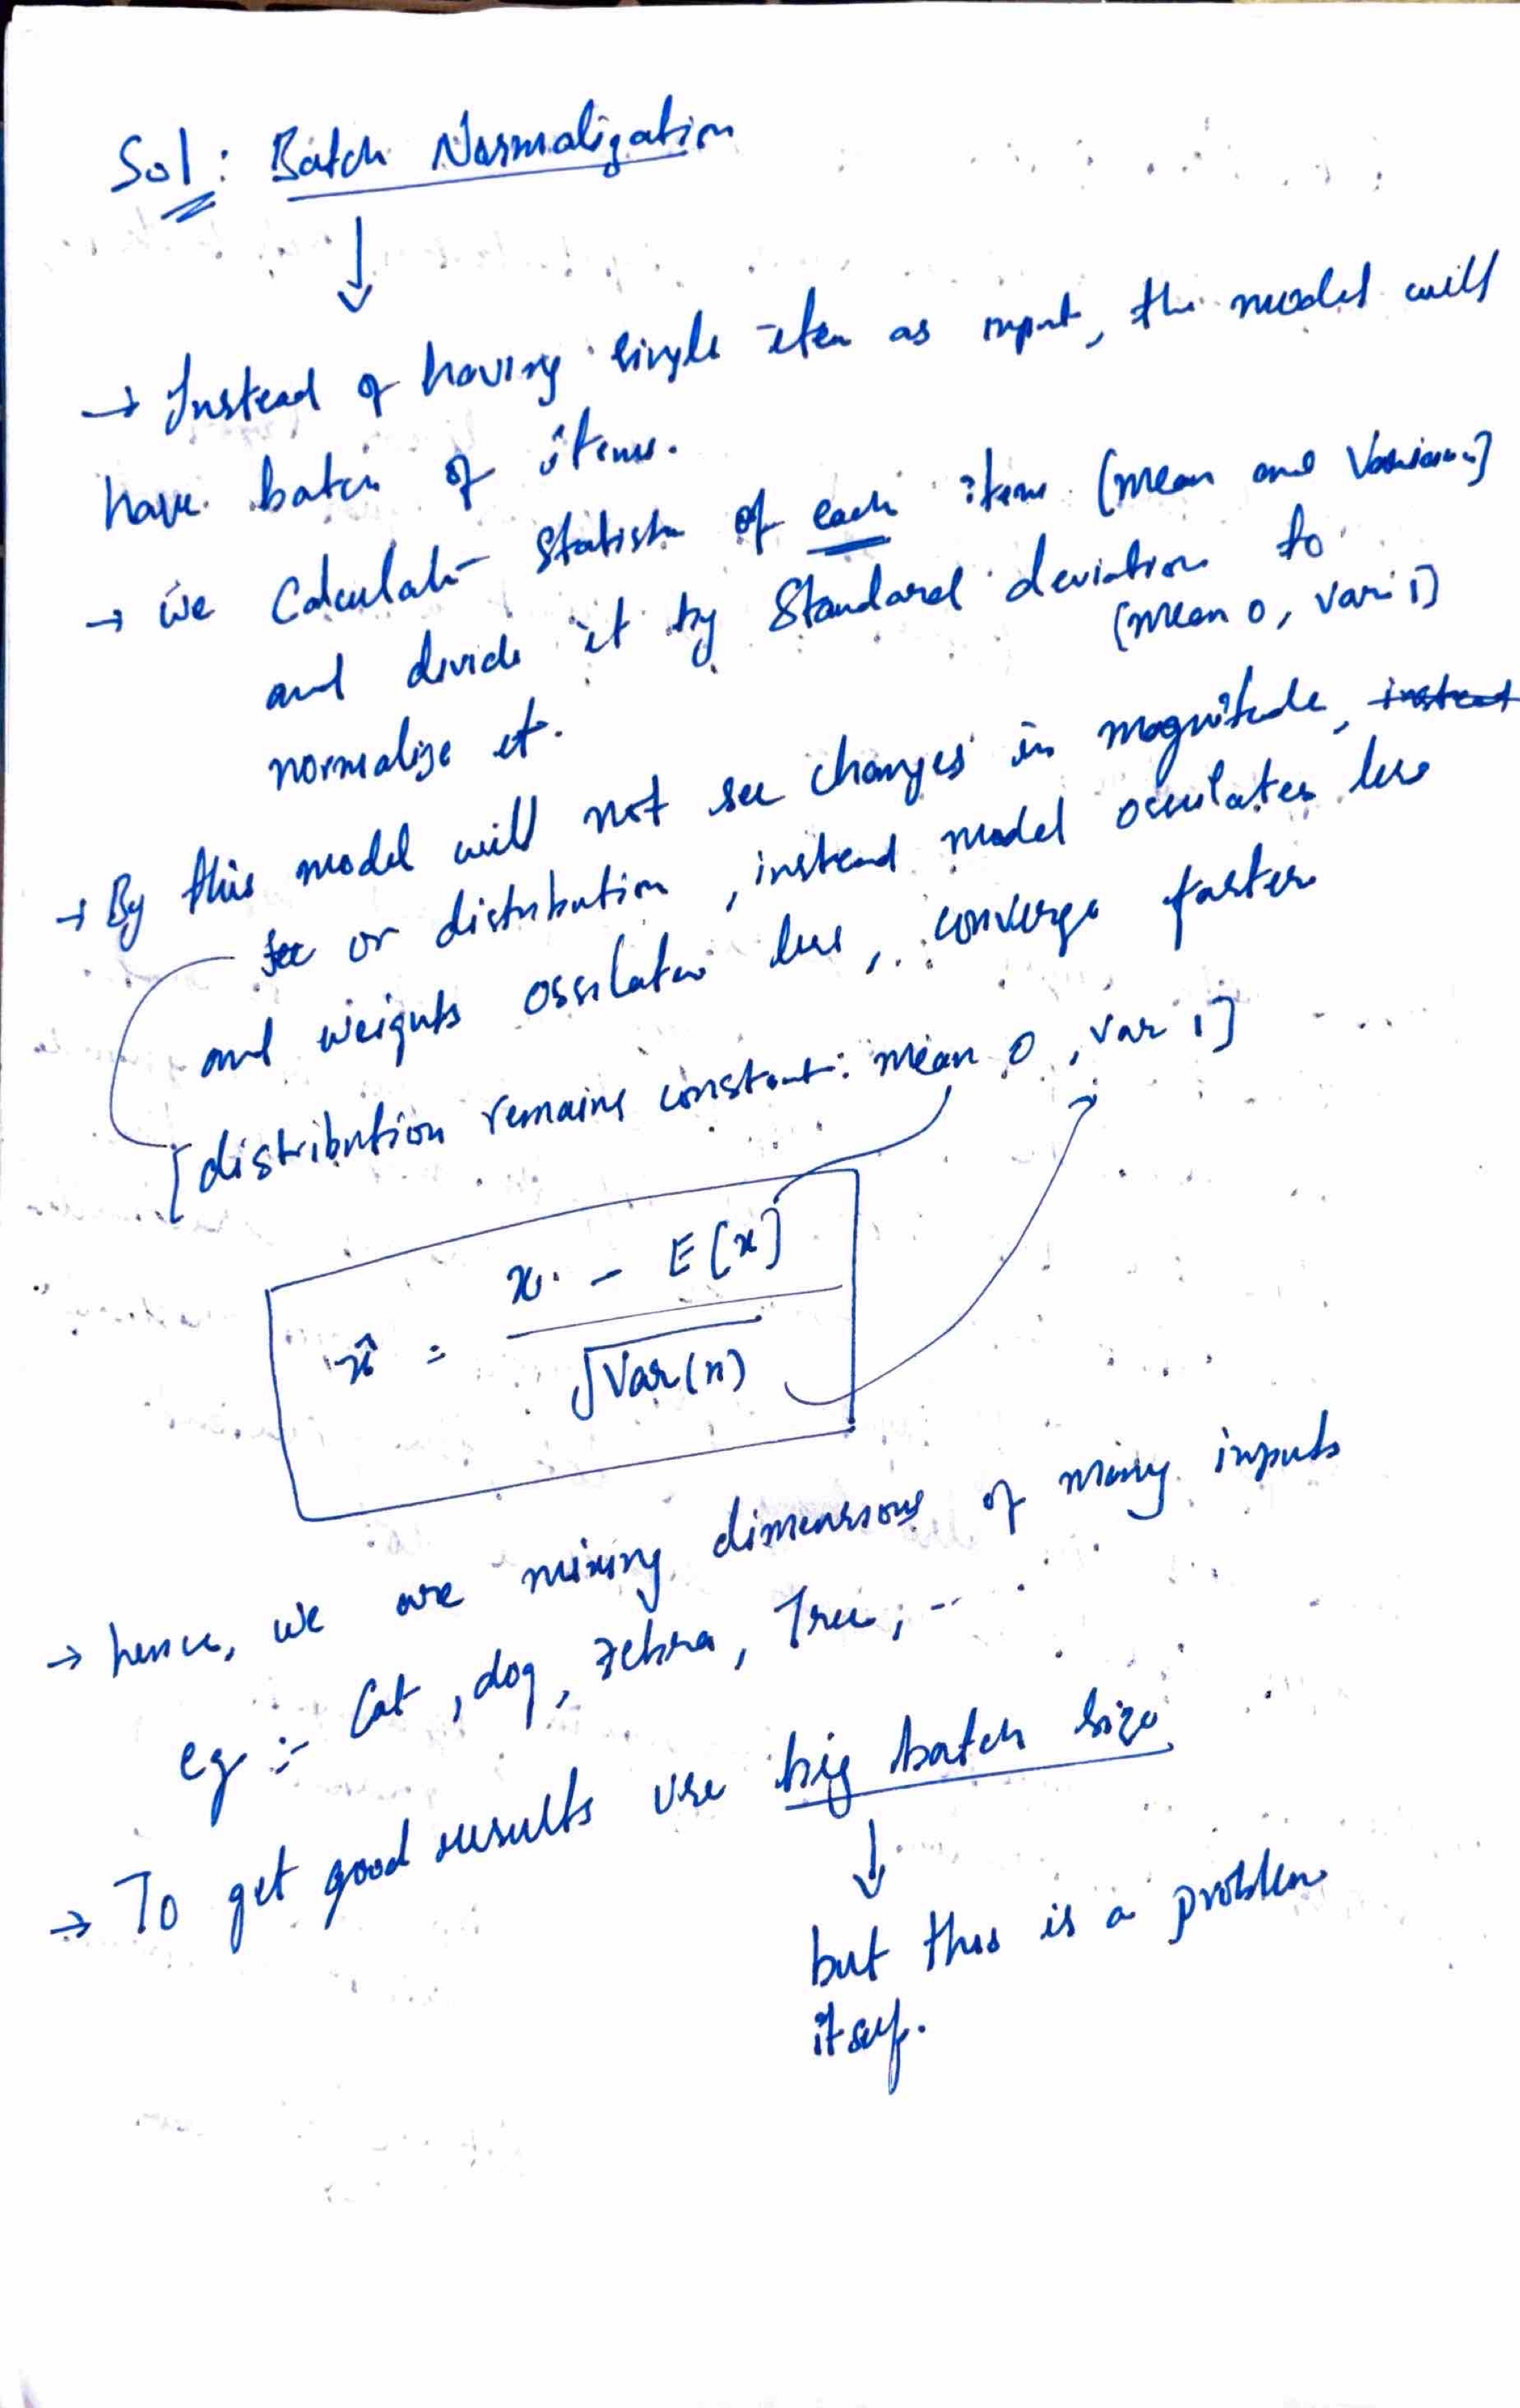 Sol: Batch Normalization
↓
→ Instead of having single item as input, the model will
have batch of items.
→ we Calculate Statistics of each item [mean and Variance]
and divide it by Standard deviation to
normalize it. [mean 0, var 1]
→ By this model will not see changes in magnitude, instead
see or distribution, instead model osculates less
and weights ossilates less, converge faster
[distribution remains constant: mean 0, var 1]
x̂ = (x - E[x]) / √Var(x)
→ hence, we are mixing dimensions of many inputs
eg :- Cat, dog, zebra, Tree, --
→ To get good results use big batch size
↓
but this is a problem
itself.